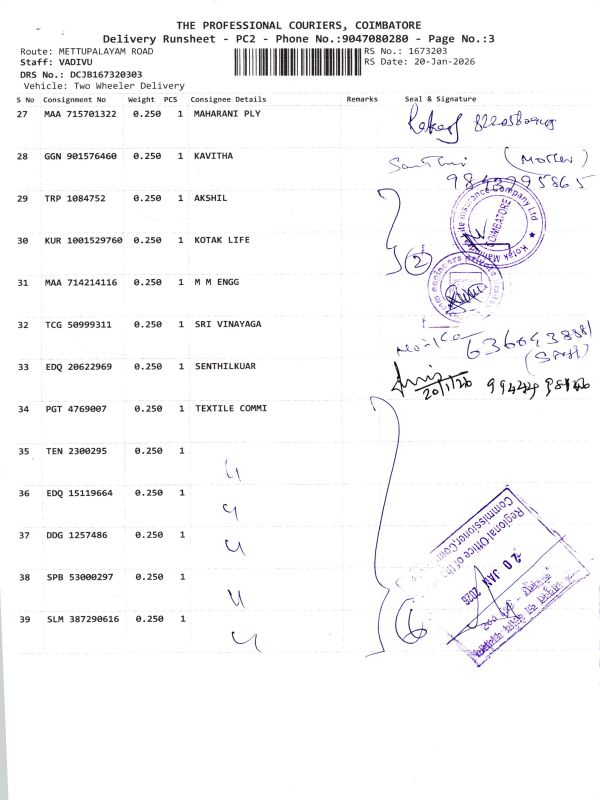 THE PROFESSIONAL COURIERS, COIMBATORE
Delivery Runsheet - PC2 - Phone No.:9047080280 - Page No.:3
Route: METTUPALAYAM ROAD
RS No.: 1673203
Staff: VADIVU
RS Date: 20-Jan-2026
DRS No.: DCJB167320303
Vehicle: Two Wheeler Delivery
S No Consignment No Weight PCS Consignee Details Remarks Seal & Signature
27 MAA 715701322 0.250 1 MAHARANI PLY
28 GGN 901576460 0.250 1 KAVITHA
(Mother)
9843295865
29 TRP 1084752 0.250 1 AKSHIL
30 KUR 1001529760 0.250 1 KOTAK LIFE
2
COIMBATORE
31 MAA 714214116 0.250 1 M M ENGG
32 TCG 50999311 0.250 1 SRI VINAYAGA
33 EDQ 20622969 0.250 1 SENTHILKUAR
20/1/26
34 PGT 4769007 0.250 1 TEXTILE COMMI
35 TEN 2300295 0.250 1
36 EDQ 15119664 0.250 1
37 DDG 1257486 0.250 1
38 SPB 53000297 0.250 1
39 SLM 387290616 0.250 1
6
Regional Office of the
20 JAN 2026